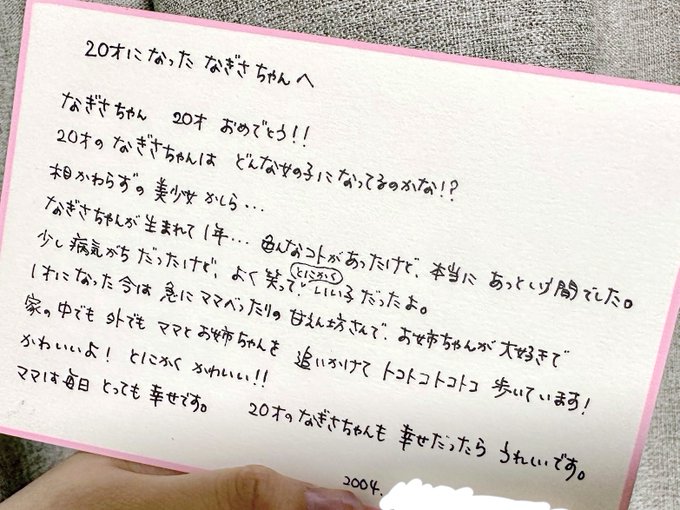 20才になった なぎさちゃんへ
なぎさちゃん 20才 おめでとう!!
20才の なぎさちゃんは どんな女の子になってるのかな!?
相かわらずの 美少女かしら...
なぎさちゃんが生まれて1年... 色んなコトがあったけど、本当に あっという間でした。
少し病気がちだったけど、よく笑って、とにかくいい子だったよ。
1才になった今は 急にママべったりの 甘えん坊さんで、お姉ちゃんが大好きで
家の中でも 外でも ママとお姉ちゃんを 追いかけて トコトコトコトコ 歩いています!
かわいいよ! とにかく かわいい!!
ママは毎日 とっても 幸せです。 20才のなぎさちゃんも 幸せだったら うれしいです。
2004.